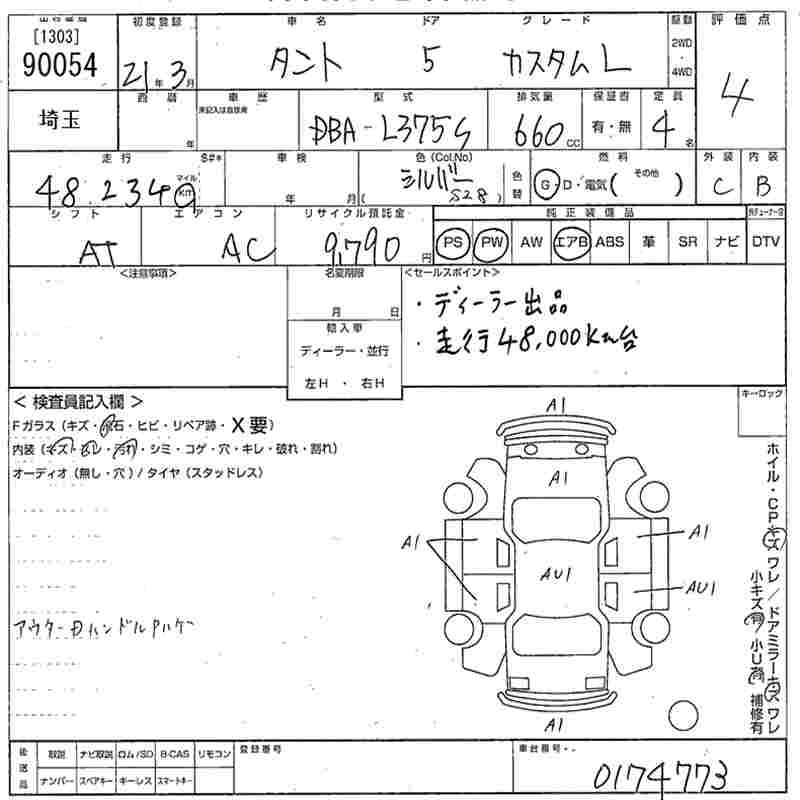 [1303]
90054
初度登録
21年3月
車名
タント
ドア
5
グレード
カスタムL
駆動
2WD
4WD
評価点
4
埼玉
西暦
年
車歴
未記入は自家用
型式
DBA-L375S
排気量
660cc
保証書
有・無
定員
4名
走行
48,234
マイル
km
S#*
車検
年 月
色(Col.No)
シルバー
(S28)
色替
燃料
G・D・電気(その他 )
外装
C
内装
B
シフト
AT
エアコン
AC
リサイクル預託金
9,790円
純正装備品
PS PW AW エアB ABS 革 SR ナビ
DTV
<注意事項>
名変期限
月 日
輸入車
ディーラー・並行
左H ・ 右H
<セールスポイント>
・ディーラー出品
・走行48,000km台
< 検査員記入欄 >
Fガラス(キズ・飛石・ヒビ・リペア跡・X要)
内装(キズ・スレ・汚れ・シミ・コゲ・穴・キレ・破れ・割れ)
オーディオ(無し・穴)/タイヤ(スタッドレス)
キーロック
A1
A1
A1
A1
AU1
AU1
A1
ホイル・CPキズ ワレ/ドアミラーキズ ワレ
小キズ有 小U有 補修有
後送品
取説 ナビ取説 ロム/SD B-CAS リモコン
ナンバー スペアキー キーレス スマートキー
登録番号
車台番号
0174773